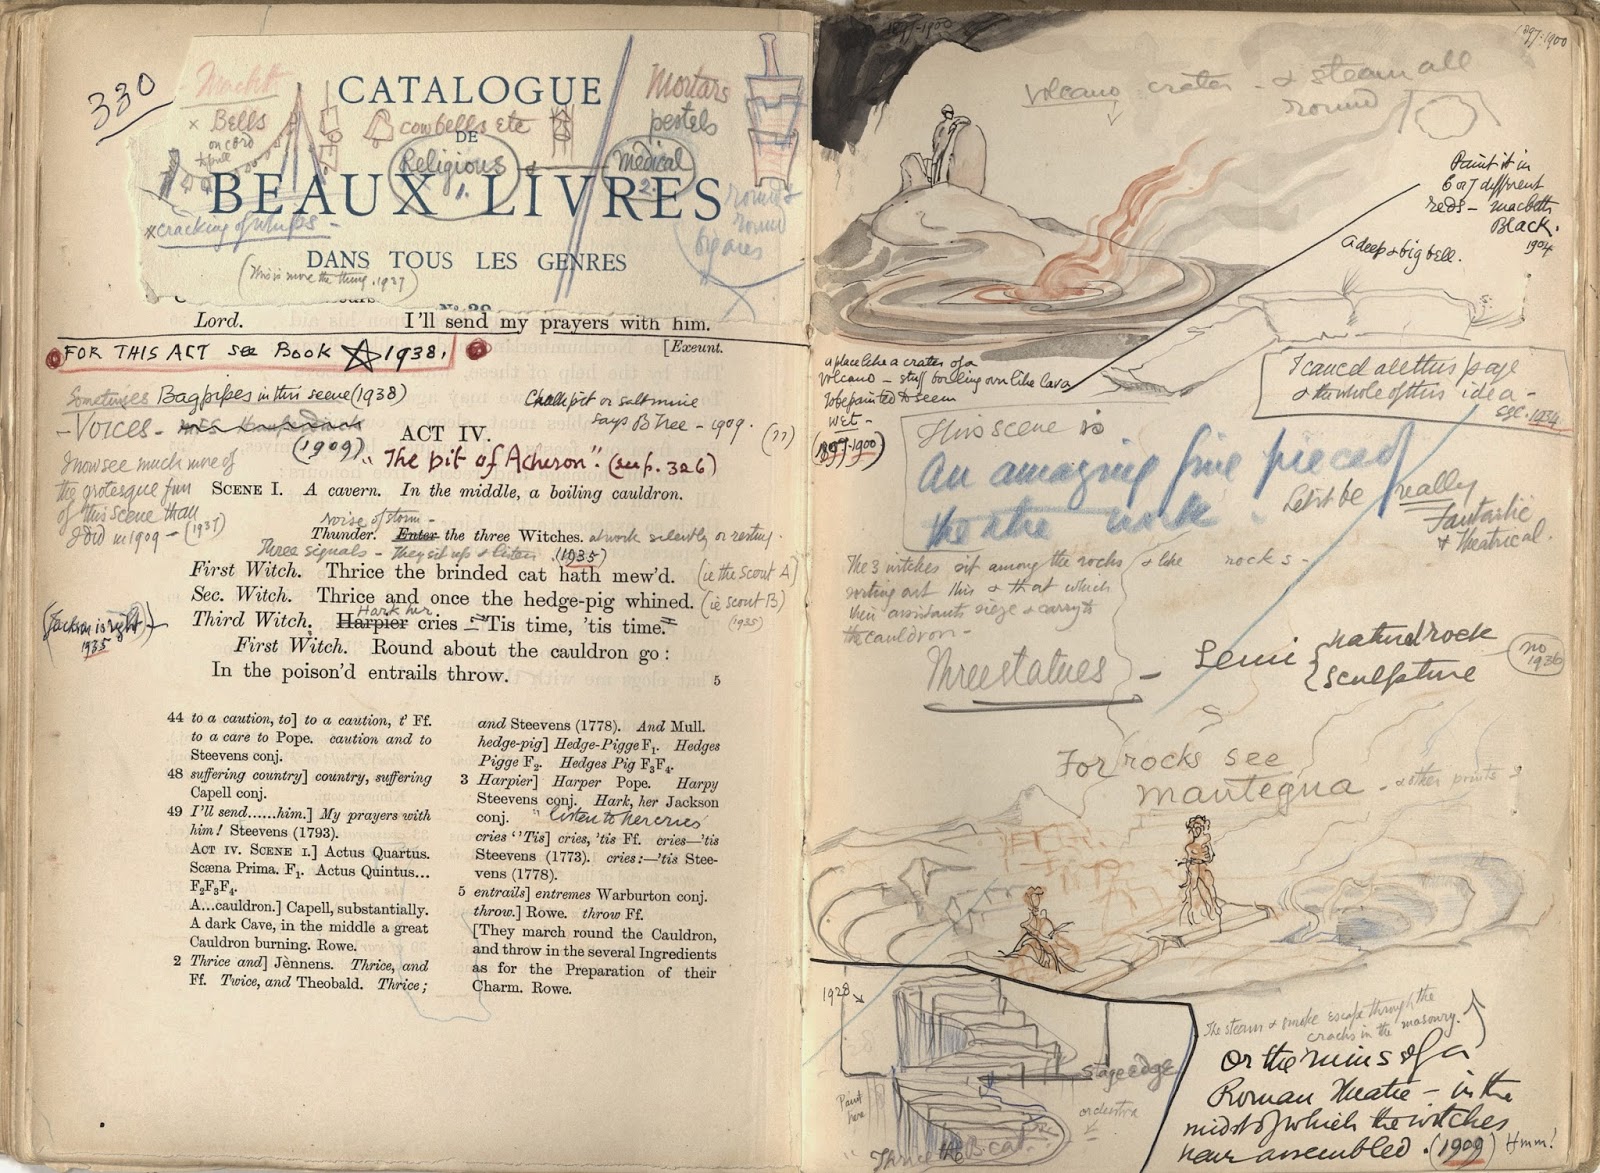 330
CATALOGUE
DE
BEAUX LIVRES
DANS TOUS LES GENRES
Bells
on cord
cowbells etc
Religious
1.
medical
2.
Mortars
pestels
round &
round
figures
x cracking of whips -
(This is more the thing. 1937)
Lord. I'll send my prayers with him.
[Exeunt.
FOR THIS ACT see Book ☆ 1938.
Sometimes Bagpipes in this scene (1938)
- Voices -
(1909)
Chalkpit or saltmine
says B Tree - 1909. (??)
ACT IV.
"The pit of Acheron". (see p. 326)
I now see much more of
the grotesque fun
of this scene than
I did in 1909 - (1937)
SCENE I. A cavern. In the middle, a boiling cauldron.
Noise of storm -
Thunder. Enter the three Witches. at work silently or resting.
Three signals - They sit up & listen (1935)
First Witch. Thrice the brinded cat hath mew'd. (ie the scout A)
Sec. Witch. Thrice and once the hedge-pig whined. (ie scout B)
(1935)
Hark her
Third Witch. Harpier cries :—'Tis time, 'tis time.
(Jackson is right)
1935
First Witch. Round about the cauldron go :
In the poison'd entrails throw. 5
44 to a caution, to] to a caution, t' Ff.
to a care to Pope. caution and to
Steevens conj.
48 suffering country] country, suffering
Capell conj.
49 I'll send......him.] My prayers with
him! Steevens (1793).
ACT IV. SCENE I.] Actus Quartus.
Scæna Prima. F₁. Actus Quintus...
F₂F₃F₄.
A...cauldron.] Capell, substantially.
A dark Cave, in the middle a great
Cauldron burning. Rowe.
2 Thrice and] Jennens. Thrice, and
Ff. Twice, and Theobald. Thrice;
and Steevens (1778). And Mull.
hedge-pig] Hedge-Pigge F₁. Hedges
Pigge F₂. Hedges Pig F₃F₄.
3 Harpier] Harper Pope. Harpy
Steevens conj. Hark, her Jackson
conj. "listen to her cries
cries :—'Tis] cries, 'tis Ff. cries—'tis
Steevens (1773). cries:—'tis Stee-
vens (1778).
5 entrails] entremes Warburton conj.
throw.] Rowe. throw Ff.
[They march round the Cauldron,
and throw in the several Ingredients
as for the Preparation of their
Charm. Rowe.
1897-1900
1897-1900
Volcano crater - & steam all
round
Paint it in
6 or 7 different
reds - macbeth
Black.
1904
A deep & big bell.
a place like a crater of a
volcano - stuff boiling over like lava
To be painted to seem
wet -
(1897-1900)
I cancel all this page
& the whole of this idea -
EGC. 1934
This scene is
An amazing fine piece of
theatre work.
Let it be really
Fantastic
& theatrical.
The 3 witches sit among the rocks & like rocks -
sorting out this & that which
their assistants seize & carry to
the cauldron -
Three statues - Semi { natural rock
sculpture
(no
1936)
For rocks see
mantegna - & other prints
1928
stage edge
Paint
here
orchestra
"Thrice the B. cat.
The steam & smoke escape through the
cracks in the masonry.
Or the ruins of a
Roman theatre - in the
midst of which the witches
have assembled. (1909) Hmm!